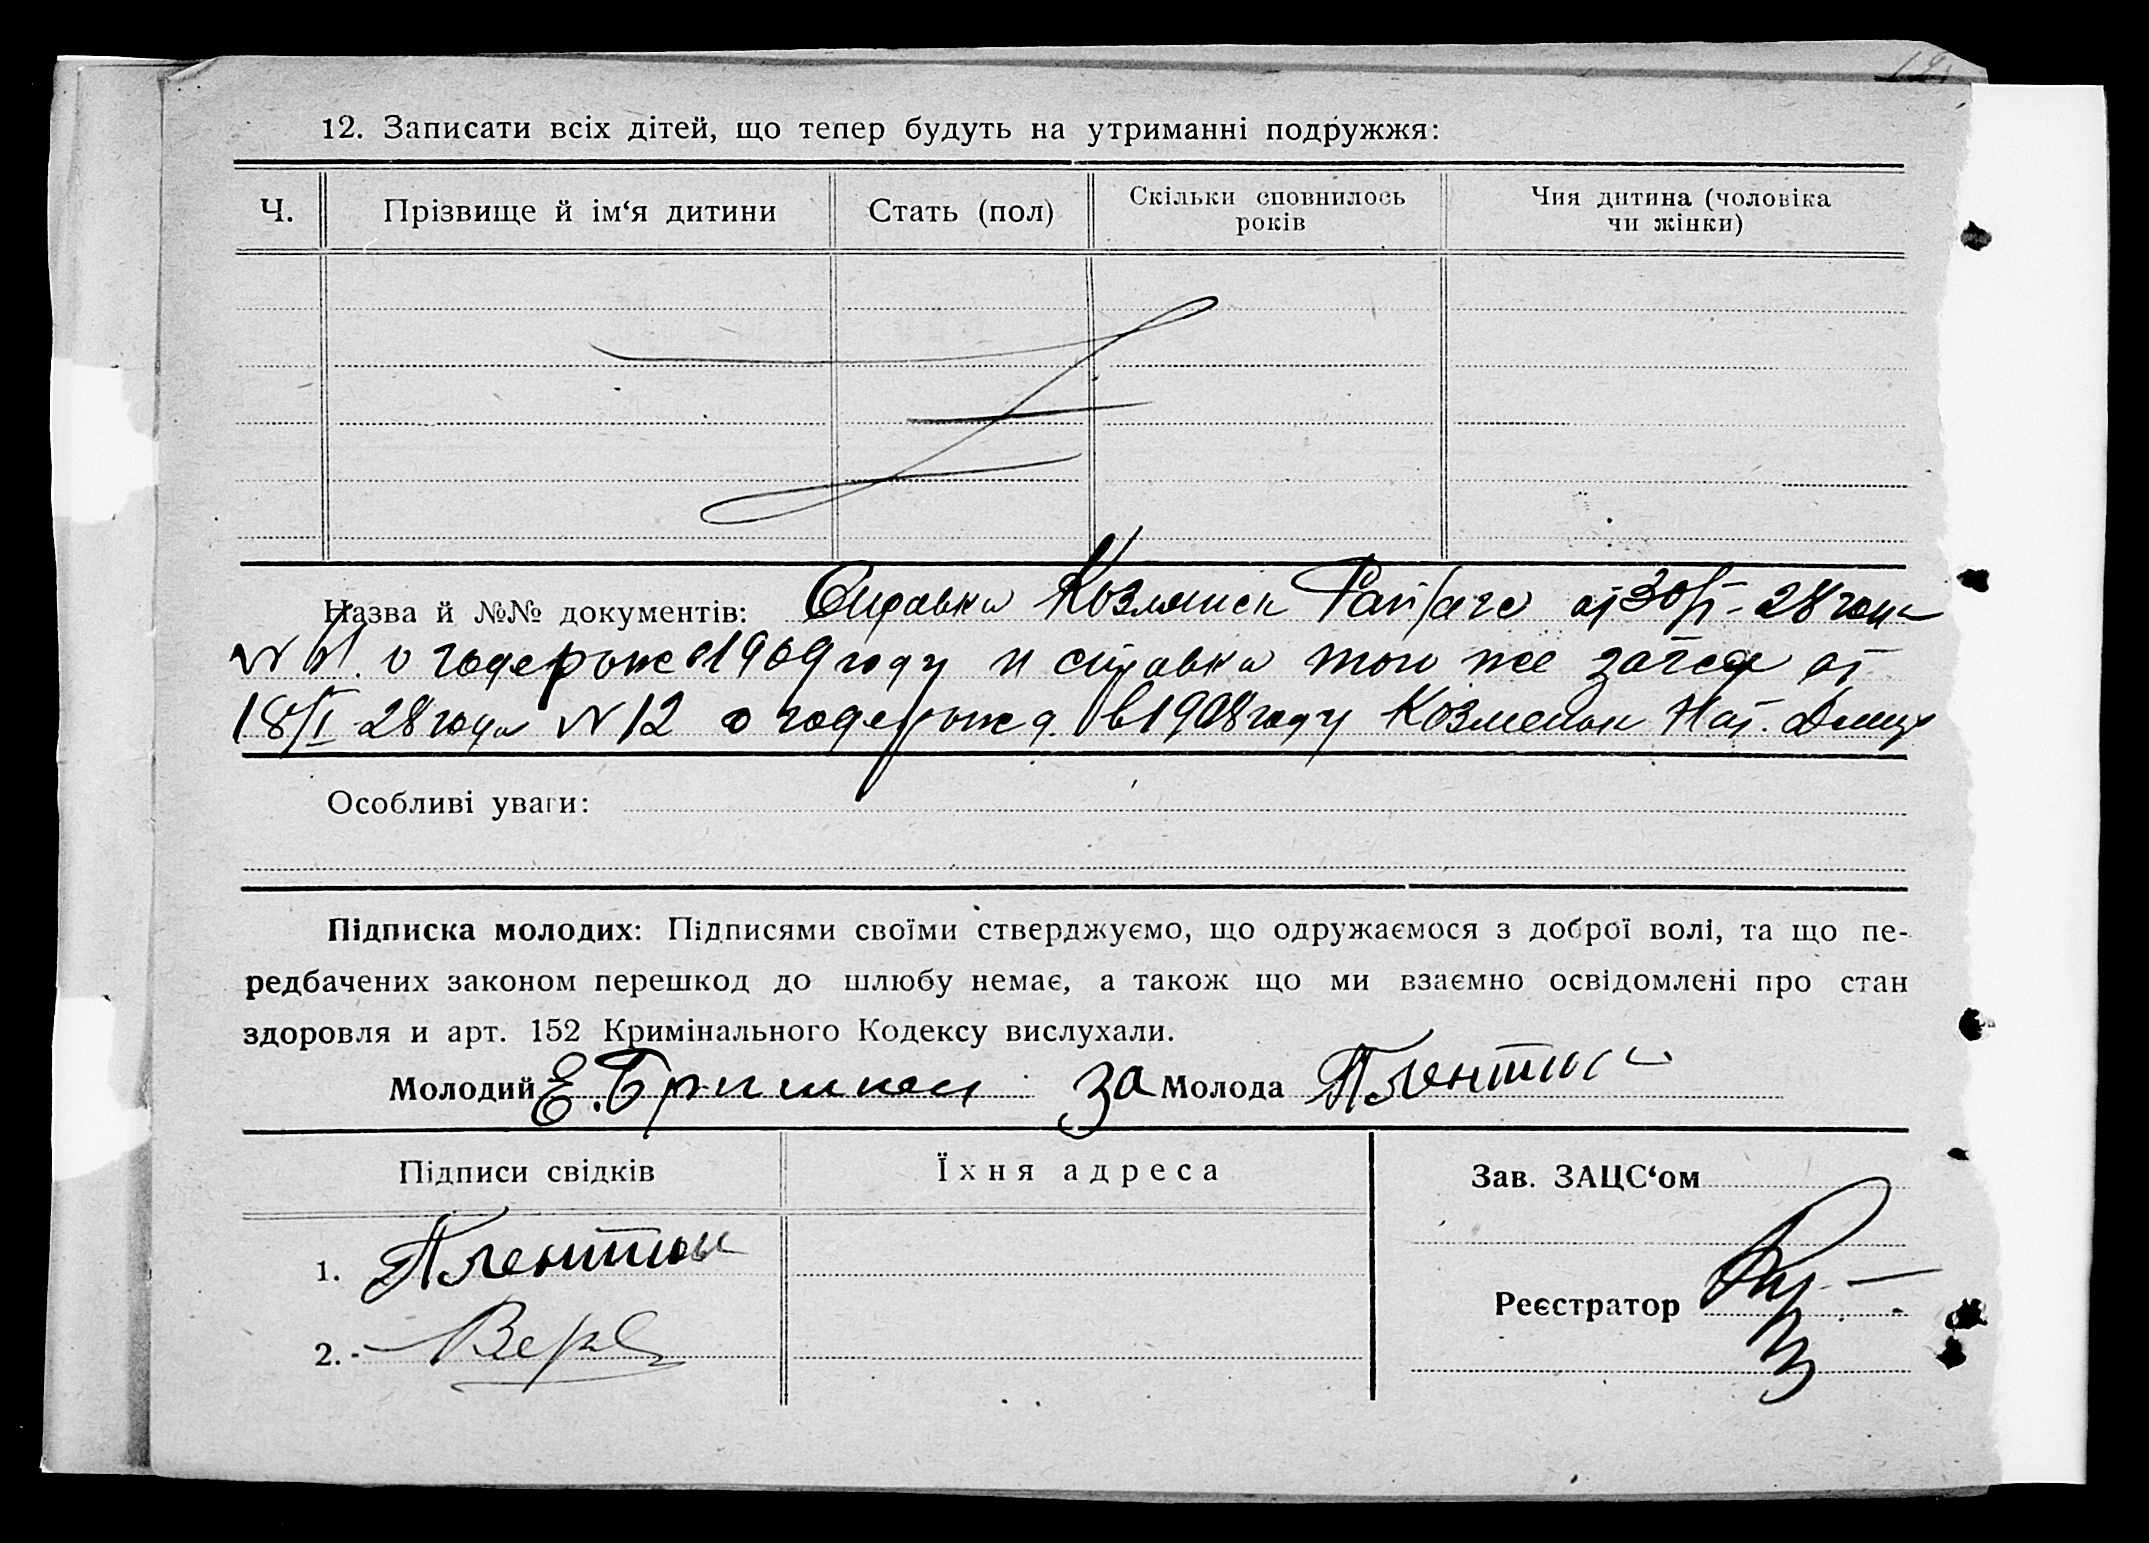 12. Записати всіх дітей, що тепер будуть на утриманні подружжя:
Ч. Прізвище й ім‘я дитини Стать (пол) Скільки сповнилось років Чия дитина (чоловіка чи жінки)
Назва й №№ документів: Справка от 30/I - 28 года
N о годе рожд 1909 году и справка того же загса от
18/I 28 года N 12 о годе рожд. в 1908 году
Особливі уваги:
Підписка молодих: Підписями своїми стверджуємо, що одружаємося з доброї волі, та що пе-
редбачених законом перешкод до шлюбу немає, а також що ми взаємно освідомлені про стан
здоровля и арт. 152 Кримінального Кодексу вислухали.
Молодий Е. за Молода
Підписи свідків Їхня адреса Зав. ЗАЦС‘ом
1.
Реєстратор
2.